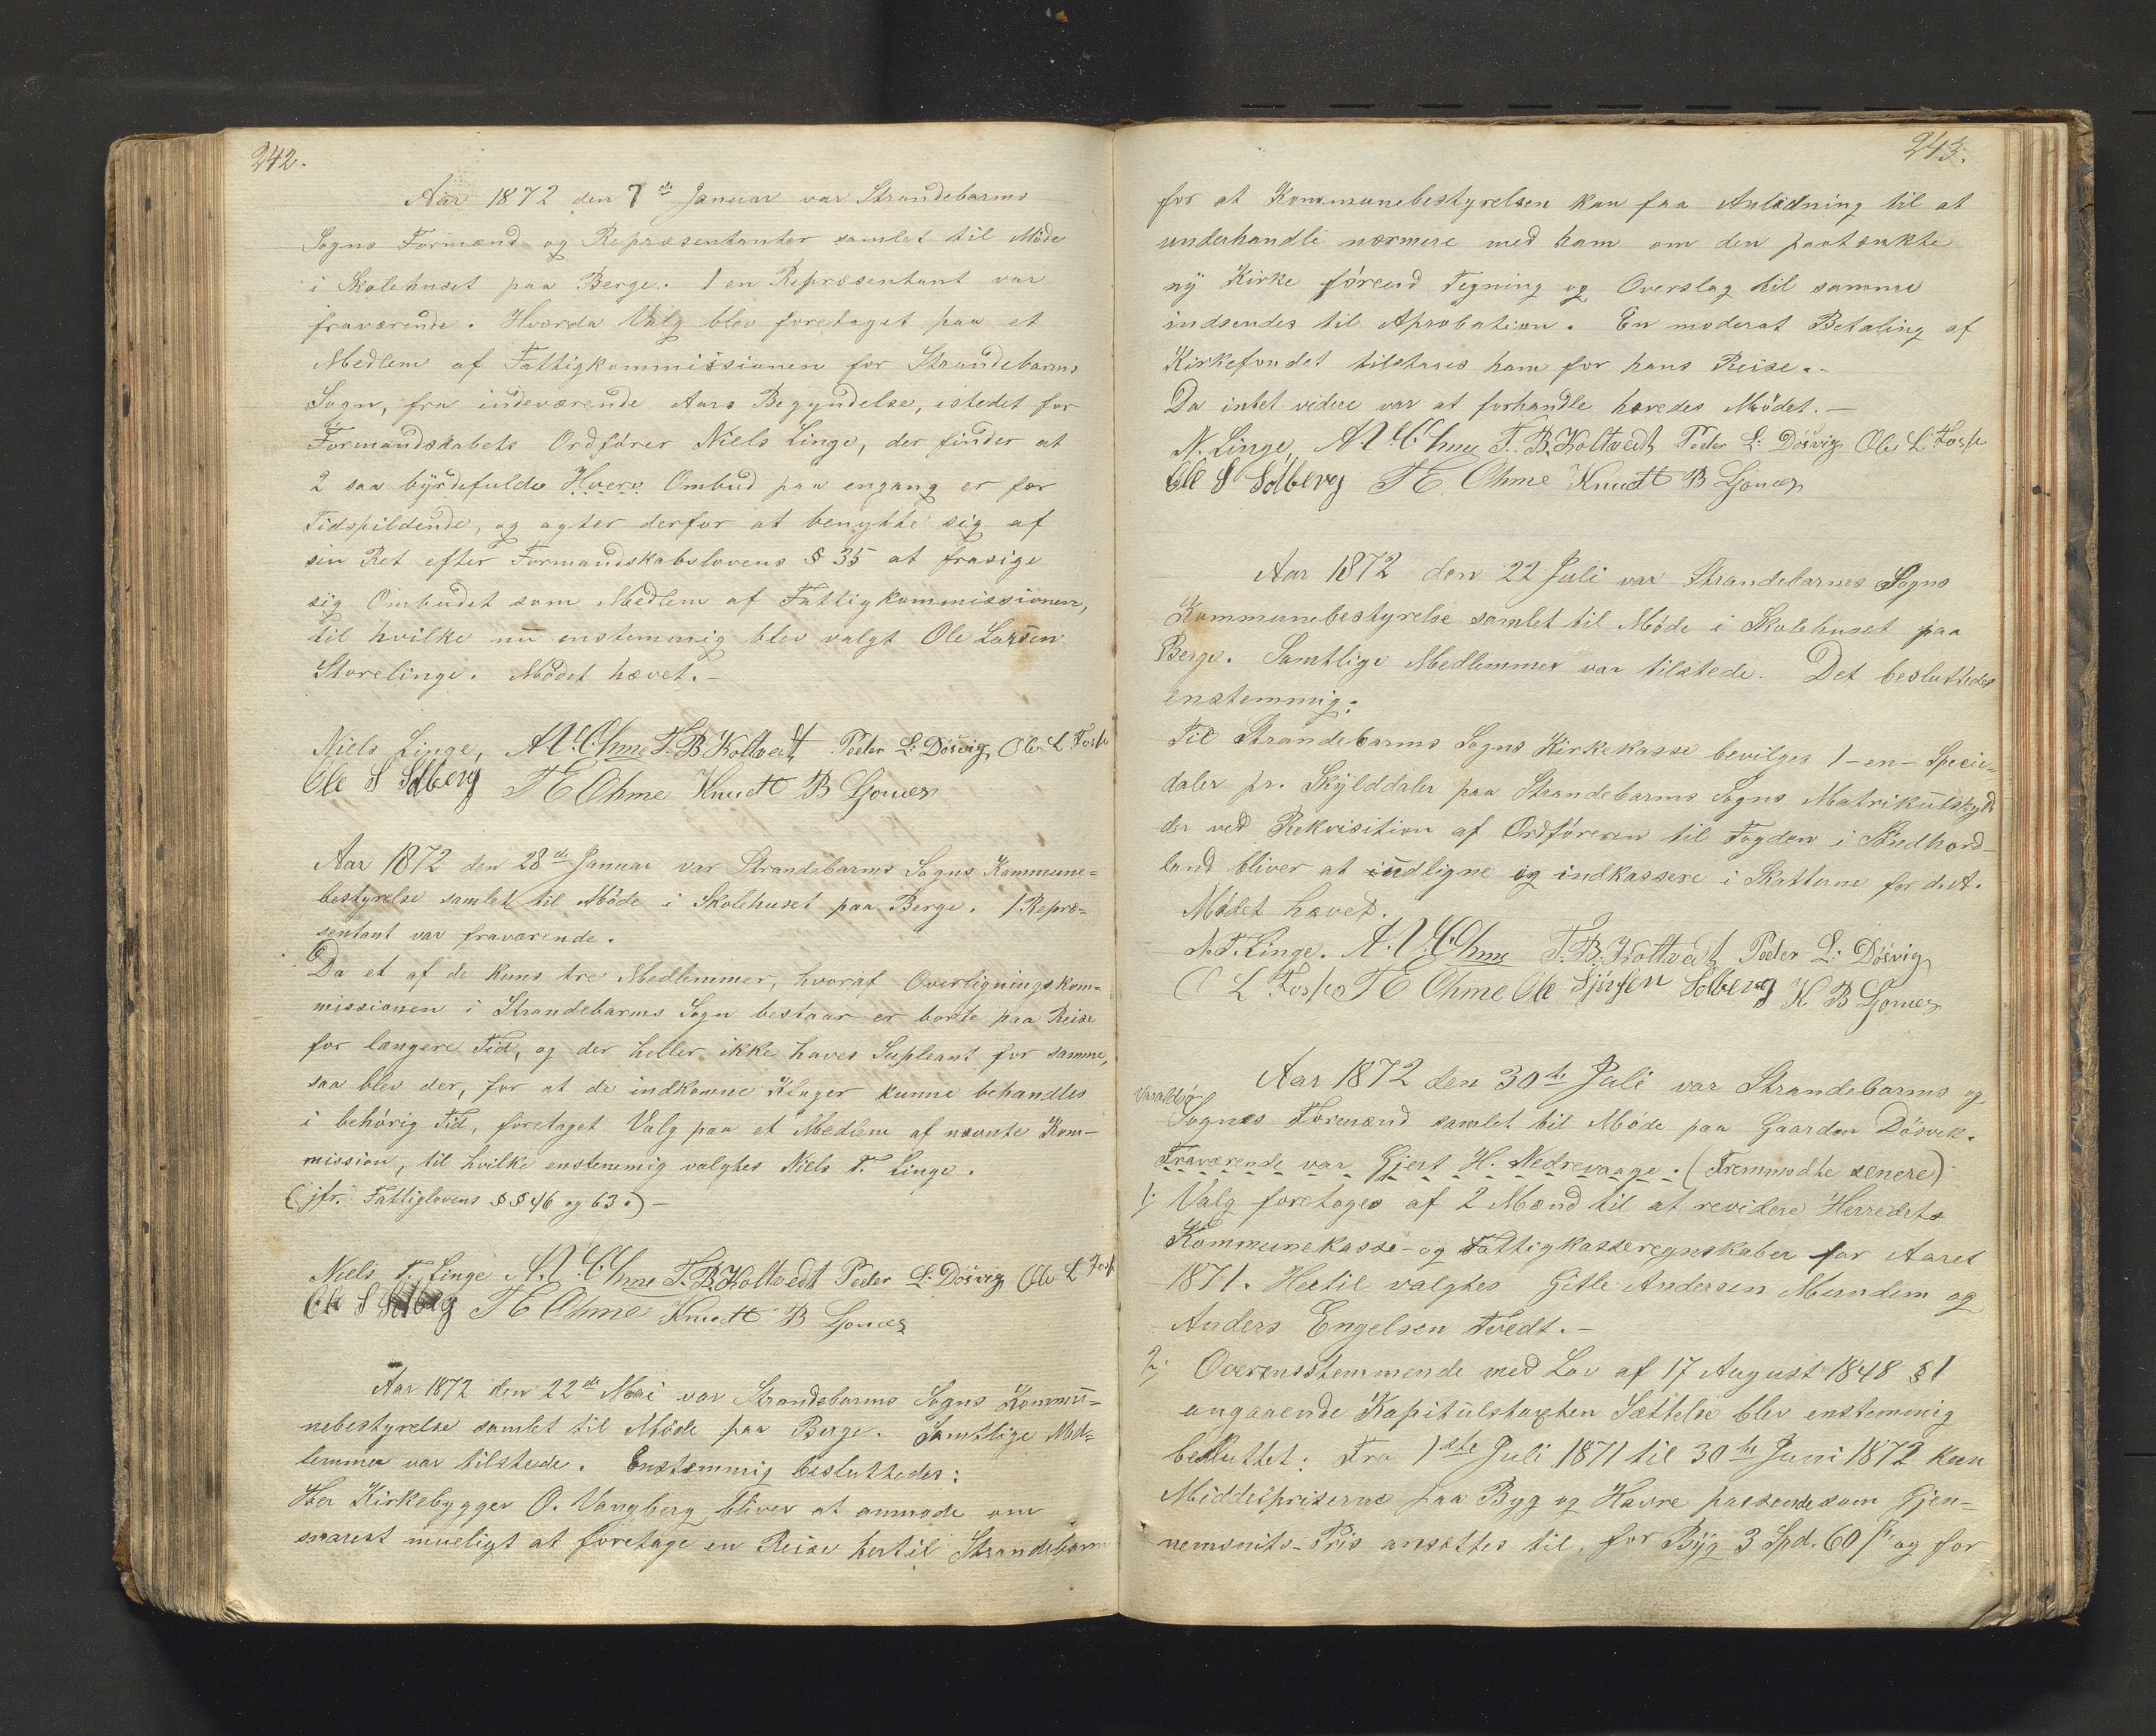 242.
Aar 1872 den 7de Januar var Strandebarms
Sogns Formænd og Repræsentanter samlet til Möde
i Skolehuset paa Berge. 1 en Repræsentant var
fraværende. Hvorda Valg blev foretaget paa et
Medlem af Fattigkommissionen for Strandebarms
Sogn, fra indeværende Aars Begyndelse, istedet for
Formandskabets Ordförer Niels Linge, der finder at
2 saa byrdefulde Hverv Ombud paa engang er for
Tidspildende, og agter derfor at benytte sig af
sin Ret efter Formandskabslovens § 35 at frasige
sig Ombudet som Medlem af Fattigkommissionen,
til hvilke nu enstemmig blev valgt Ole Larsen
Storelinge. Mödet hævet.-
Niels Linge, A. N. C. Ohme T. B. Koltvedt Peder L: Dösvig Ole L Foss
Ole S Solberg T E Ohme Knudt B Ljones
Aar 1872 den 28de Januar var Strandebarms Sogns Kommune=
bestyrelse samlet til Möde i Skolehuset paa Berge. 1 Repræ=
sentant var fraværende.
Da et af de kuns tre Medlemmer, hvoraf Overligningskom=
missionen i Strandebarms Sogn bestaar er borte paa Reise
for længere Tid, og der heller ikke haves Supleant for samme,
saa blev der, for at de indkomne Klager kunne behandles
i behörig Tid, foretaget Valg paa et Medlem af nævnte Kom-
mission, til hvilke enstemmig valgtes Niels T. Linge.
(jfr. Fattiglovens §§ 46 og 63.)-
Niels T. Linge A. N. C. Ohme T. B. Koltvedt Peder L: Dösvig Ole L Foss
Ole S Solberg T E Ohme Knudt B Ljones
Aar 1872 den 22de Mai var Strandebarms Sogns Kommu=
nebestyrelse samlet til Möde paa Berge. Samtlige Med=
lemmer var tilstede. Enstemmig besluttedes:
Her Kirkebygger O. Vangberg bliver at anmode om
snarest mueligt at foretage en Reise hertil Strandebarm
243.
for at Kommunebestyrelsen kan faa Anledning til at
underhandle nærmere med ham om den paatænkte
ny Kirke förend Tegning og Overslag til samme
indsendes til Aprobation. En moderat Betaling af
Kirkefondet tilstaaes ham for hans Reise.-
Da intet videre var at forhandle hævedes Mödet.-
N. Linge, A. N. C. Ohme T. B. Koltvedt Peder L: Dösvig Ole L Foss
Ole S Solberg T E Ohme Knudt B Ljones
Aar 1872 den 22 Juli var Strandebarms Sogns
Kommunebestyrelse samlet til Möde i Skolehuset paa
Berge. Samtlige Medlemmer var tilstede. Det besluttedes
enstemmig:
Til Strandebarms Sogns Kirkekasse bevilges 1-en- Specie=
daler pr. Skylddaler paa Strandebarms Sogns Matrikulskyld
der ved Rekvisition af Ordföreren til Fogden i Söndhord-
land bliver at udligne og indkassere i Skatterne for d. A.
Mödet hævet.
N. T. Linge. A. N. C. Ohme T. B. Koltvedt Peder L: Dösvig
O L Foss T E Ohme Ole Sjursen Solberg K B Ljones
Aar 1872 den 30te Juli var Strandebarms og
Varaldsö
Sognes Formænd samlet til Möde paa Gaarden Dösvik.
Fraværende var Gjert H. Nedrevaage. (Fremmödte senere)
1; Valg foretages af 2 Mænd til at revidere Herredets
Kommunekasse- og Fattigkasseregnskaber for Aaret
1871. Hertil valgtes Gitle Andersen Mundem og
Anders Engelsen Tvedt.-
2; Overensstemmende med Lov af 17 August 1848 § 1
angaaende Kapitulstaxten Sættelse blev enstemmig
besluttet: Fra 1ste Juli 1871 til 30te Juni 1872 kan
Middelpriserne paa Byg og Havre passende som Gjen-
nemsnits-Pris ansættes til, for Byg 3 Spd. 60 ß og for